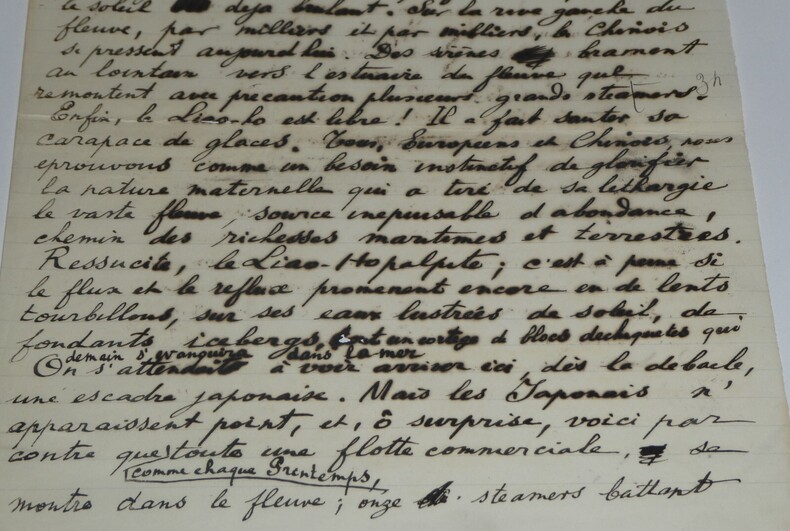 le soleil déjà brûlant. Sur la rive gauche du
fleuve, par milliers et par milliers, les Chinois
se pressent aujourd'hui. Des sirènes brament
au lointain vers l'estuaire du fleuve que
remontent avec précaution plusieurs grands steamers.
Enfin, le Liao-ho est libre ! Il a fait sauter sa
carapace de glaces. Tous, Européens et Chinois, nous
éprouvons comme un besoin instinctif de glorifier
la nature maternelle qui a tiré de sa léthargie
le vaste fleuve, source inépuisable d'abondance,
chemin des richesses maritimes et terrestres.
Ressucité, le Liao-Ho palpite ; c'est à peine si
le flux et le reflux promènent encore en de lents
tourbillons, sur ses eaux lustrées de soleil, de
fondants icebergs, un cortège de blocs déchiquetés qui
demain s'évanouira dans la mer
On s'attendait à voir arriver ici, dès la débâcle,
une escadre japonaise. Mais les Japonais n'
apparaissent point, et, ô surprise, voici par
contre que toute une flotte commerciale, se
comme chaque Printemps,
montre dans le fleuve ; onze steamers battant